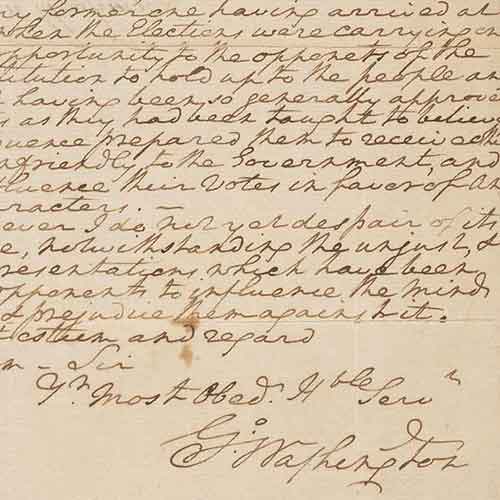 my former one having arrived at
when the Elections were carrying on
opportunity to the opponets of the
titution to hold up to the people an
having been so generally approve
s as they had been taught to believe
uence prepared them to receive
nfriendly to the Government, and
fluence their Votes in favor of
racters.—
ever I do not yet despair of its
e, notwithstanding the unjust, &
resentations which have been
opponents to influence the mind
& prejudice them against it.
esteem and regard
m — Sir
Yr. Most Obed. Hble Servn
Go. Washington